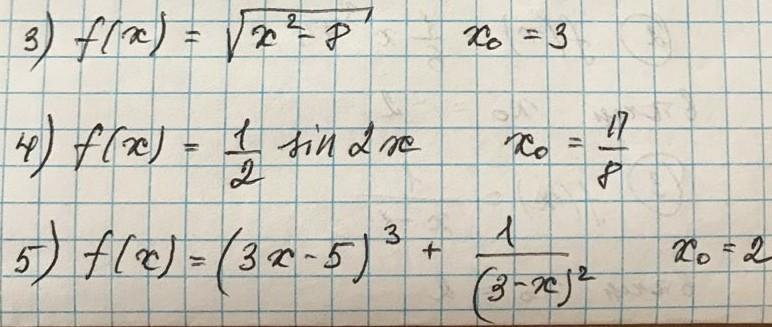 3) f(x) = √(x² - 8) x₀ = 3
4) f(x) = 1/2 sin 2x x₀ = π/8
5) f(x) = (3x - 5)³ + 1/(3 - x)² x₀ = 2